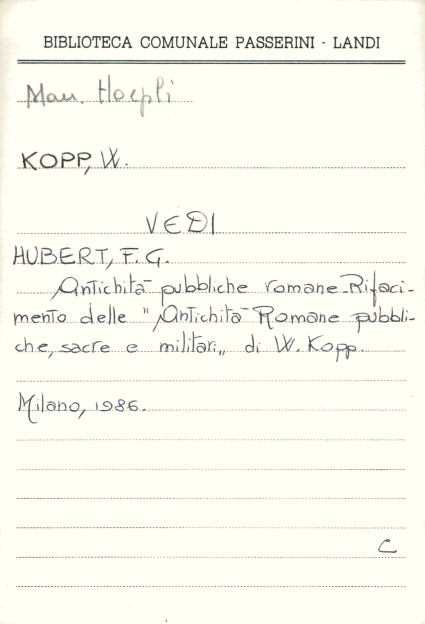 BIBLIOTECA COMUNALE PASSERINI - LANDI
Man. Hoepli
KOPP, W.
VEDI
HUBERT, F. G.
Antichità pubbliche romane - Rifaci-
mento delle "Antichità Romane pubbli-
che, sacre e militari„ di W. Kopp.
Milano, 1986.
C